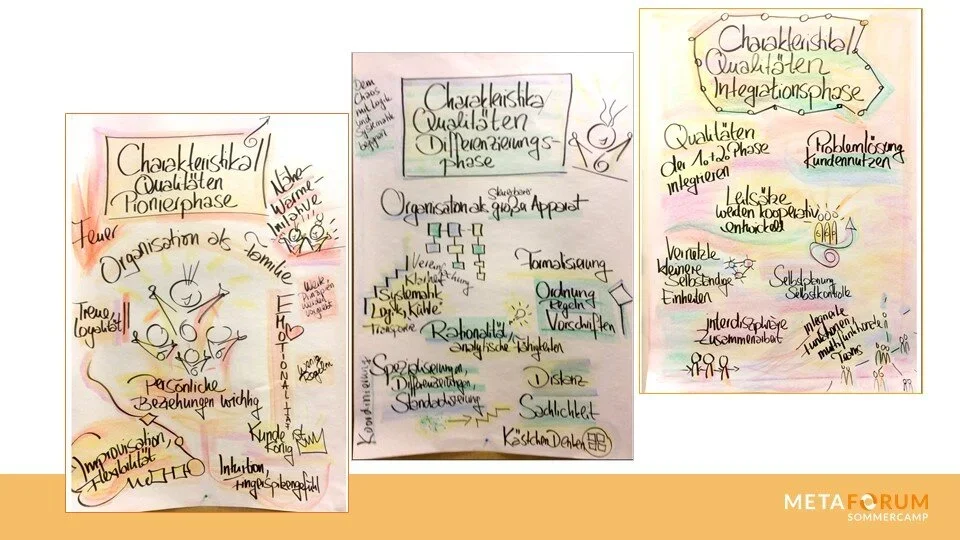 Charakteristika/
Qualitäten
Pionierphase
Nähe-
Wärme-
Initiative
Feuer
Organisation als Familie
Treue
Loyalität!!
EMOTIONALITÄT
Persönliche
Beziehungen wichtig
wenig
Regeln
Improvisation,
Flexibilität
Kunde ist
König
Intuition,
Fingerspitzengefühl
Dem
Chaos
mit Logik
und
Systematik
Charakteristika
Qualitäten
Differenzierungs-
phase
Steuerbarer
Organisation als großer Apparat
Vereinfachung
Klarheit
Systematik
Logik, Kühle
Transparenz
Formalisierung
Ordnung
Regeln
Vorschriften
Rationalität,
analytische Fähigkeiten
Koordinierung
Spezialisierungen,
Differenzierungen,
Standardisierung
Distanz
Sachlichkeit
Kästchen Denken
Charakteristika/
Qualitäten
Integrationsphase
Qualitäten
der 1. + 2. Phase
integrieren
Problemlösung
Kundennutzen
Leitsätze
werden kooperativ
entwickelt
Vernetzte
kleinere
Selbständige
Einheiten
Selbstplanung
Selbstkontrolle
Interdisziplinäre
Zusammenarbeit
Teams
METAFORUM
SOMMERCAMP